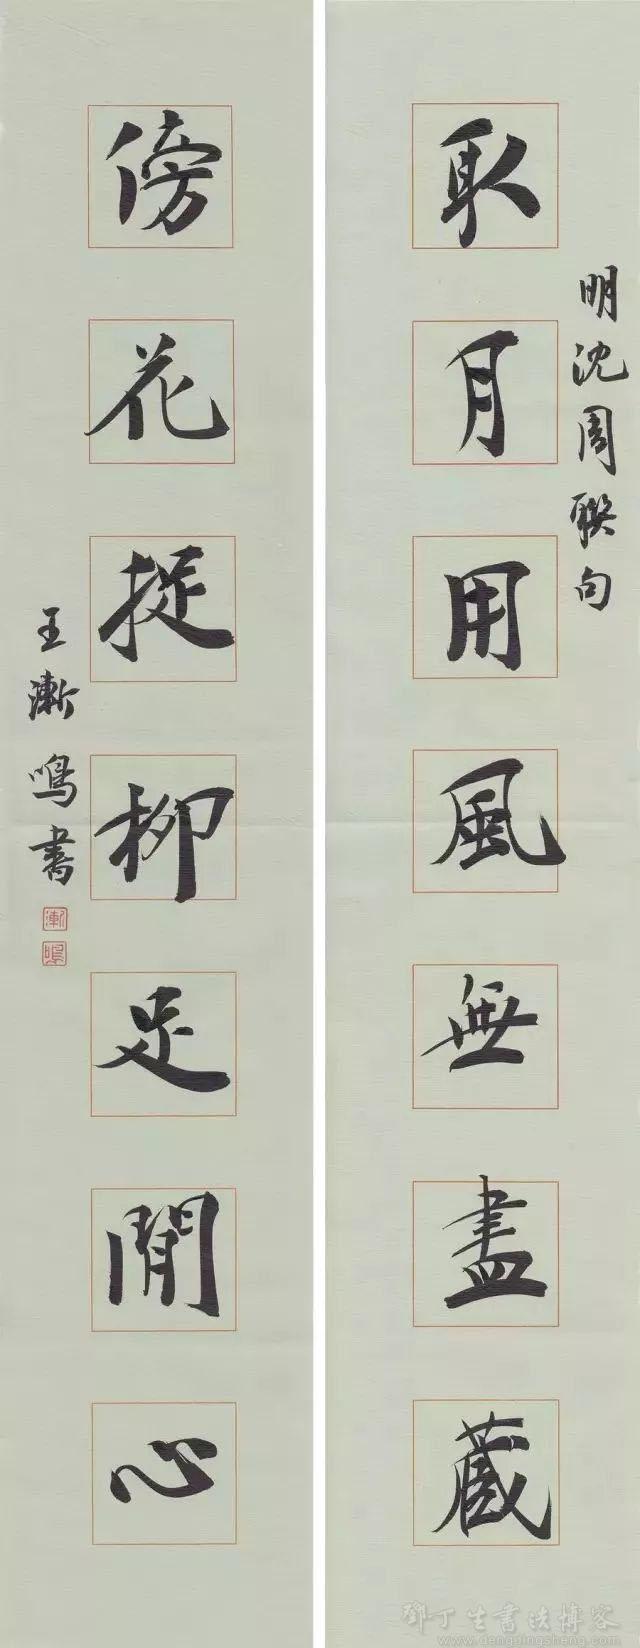 明沈周聯句
取月用風無盡藏
傍花捉柳足閒心
王漸鳴書
漸
鳴
鄧丁生書法博客
www.dengdingsheng.com